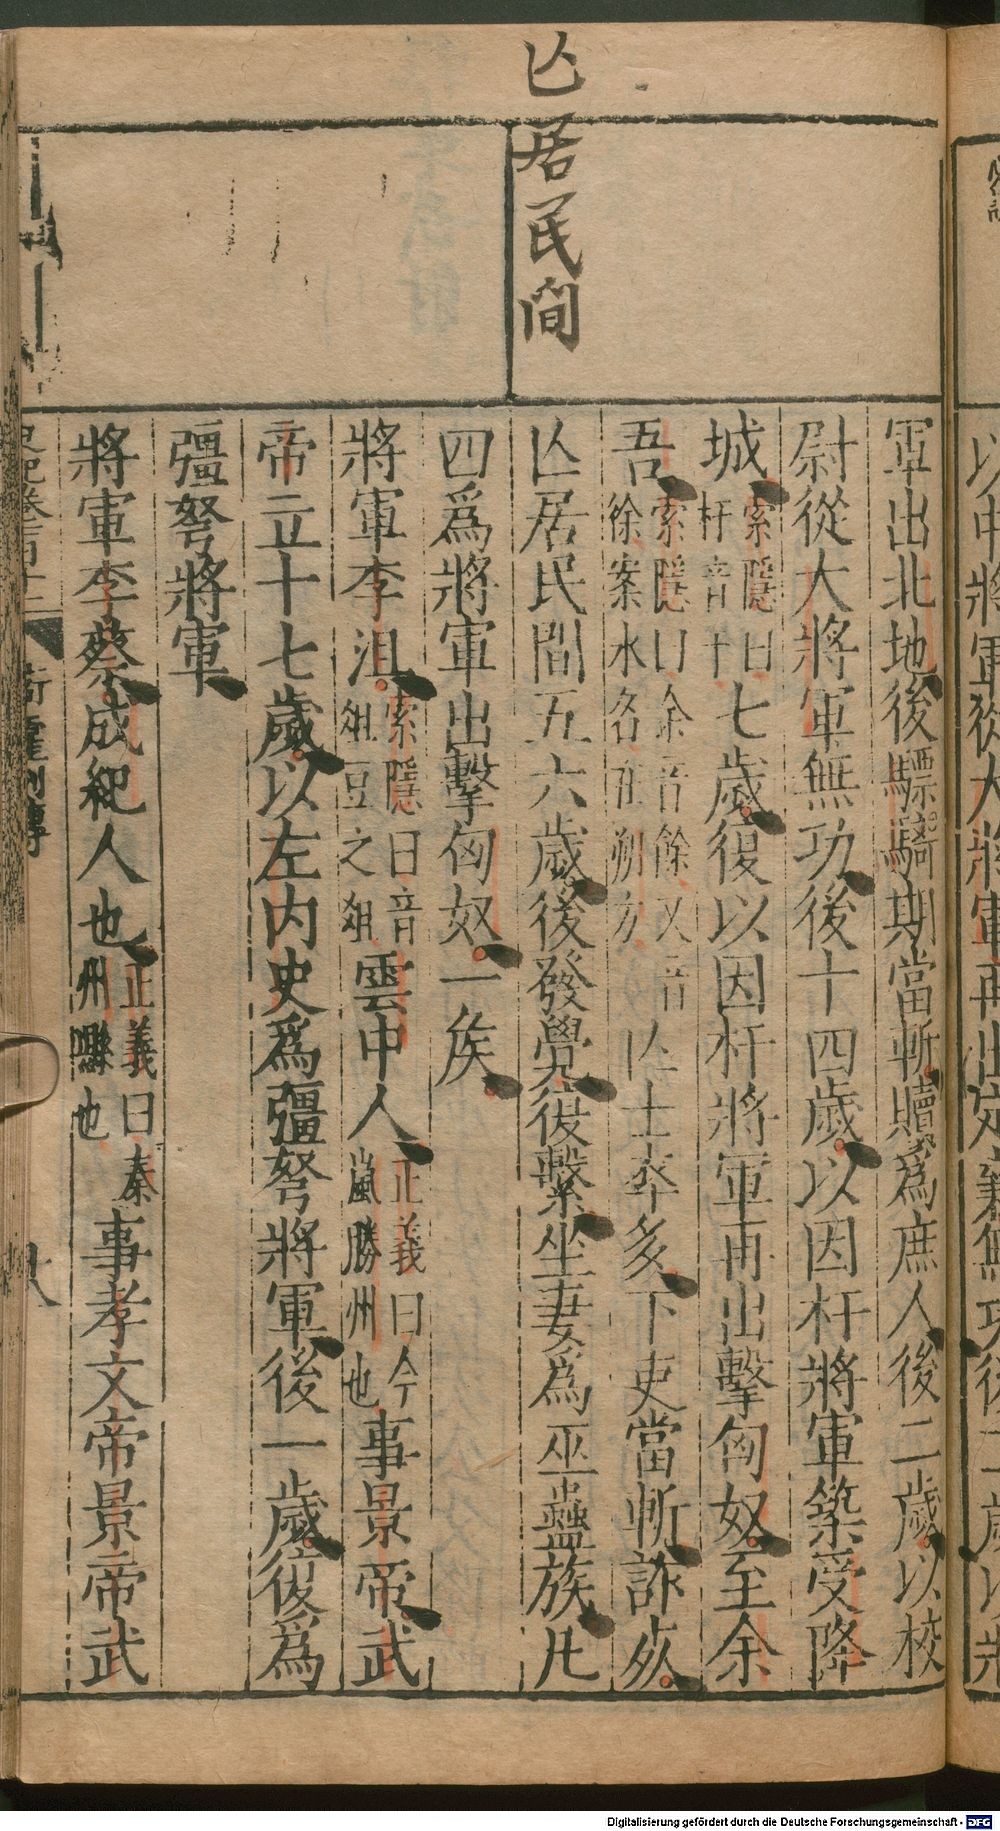 亾居民間
軍出北地後驃騎期當斬贖爲庶人後二歲以校
尉從大將軍無功後十四歲以因杅將軍築受降
城索隱曰杅音于七歲復以因杅將軍再出擊匈奴至余
吾索隱曰余音餘又音徐案水名在朔方亾士卒多下吏當斬詐死
亾居民間五六歲後發覺復繫坐妻爲巫蠱族凡
四爲將軍出擊匈奴一侯
將軍李沮索隱曰音俎豆之俎雲中人正義曰今嵐勝州也事景帝武
帝立十七歲以左內史爲彊弩將軍後一歲復爲
彊弩將軍
將軍李蔡成紀人也正義曰秦州縣也事孝文帝景帝武
Digitalisierung gefördert durch die Deutsche Forschungsgemeinschaft - DFG